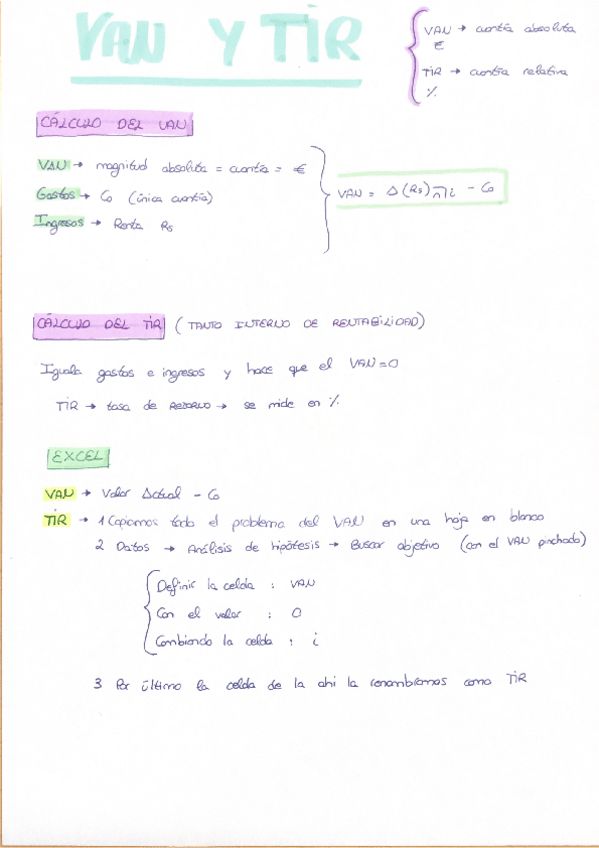 VAN Y TIR
VAN → cuantía absoluta
€
TIR → cuantía relativa
%
CÁLCULO DEL VAN
VAN → magnitud absoluta = cuantía = €
Gastos → Co (única cuantía)
Ingresos → Renta Rs
VAN = A(Rs)n¬i - Co
CÁLCULO DEL TIR (TANTO INTERNO DE RENTABILIDAD)
Iguala gastos e ingresos y hace que el VAN=0
TIR → tasa de RETORNO → se mide en %
EXCEL
VAN → Valor Actual - Co
TIR → 1 Copiamos todo el problema del VAN en una hoja en blanco
2 Datos → Análisis de hipótesis → Buscar objetivo (con el VAN pinchado)
Definir la celda : VAN
Con el valor : 0
Cambiando la celda : i
3 Por último la celda de la ahi la renombramos como TIR